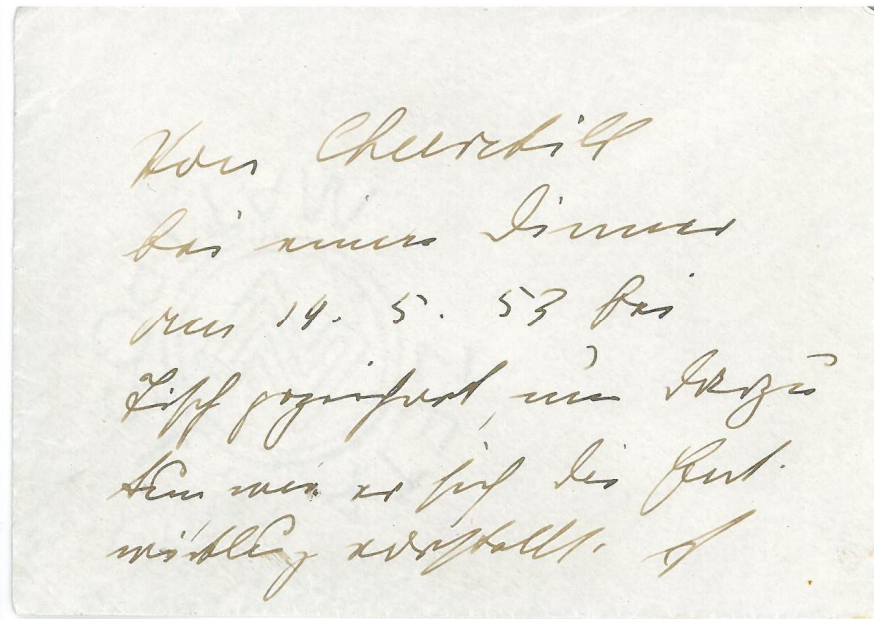 Von Churchill
bei einem Dinner
am 14. 5. 53 bei
Tisch gezeichnet, um darzu
tun wie er sich die Ent-
wicklung vorstellt.